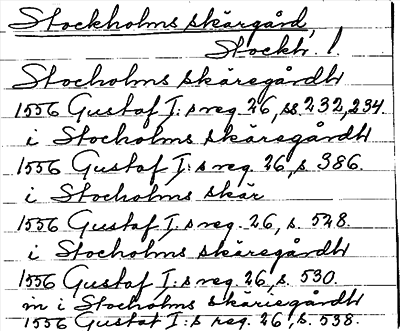 Stockholms skärgård,
Stockh. l.
Stocholms skäregårdh
1556 Gustaf I:s reg. 26, ss 232, 234.
i Stocholms skäregårdh
1556 Gustaf I:s reg. 26, s. 386.
i Stocholms skär
1556 Gustaf I:s reg. 26, s. 528.
i Stocholms skäregårdh
1556 Gustaf I:s reg. 26, s. 530.
in i Stocholms skäriegårdh
1556 Gustaf I:s reg. 26, s. 538.